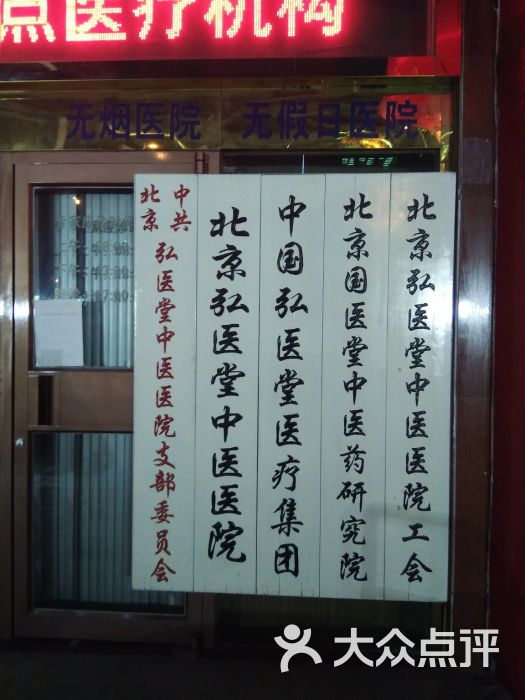 点医疗机构
无烟医院 无假日医院
中共北京弘医堂中医医院支部委员会
北京弘医堂中医医院
中国弘医堂医疗集团
北京国医堂中医药研究院
北京弘医堂中医医院工会
大众点评